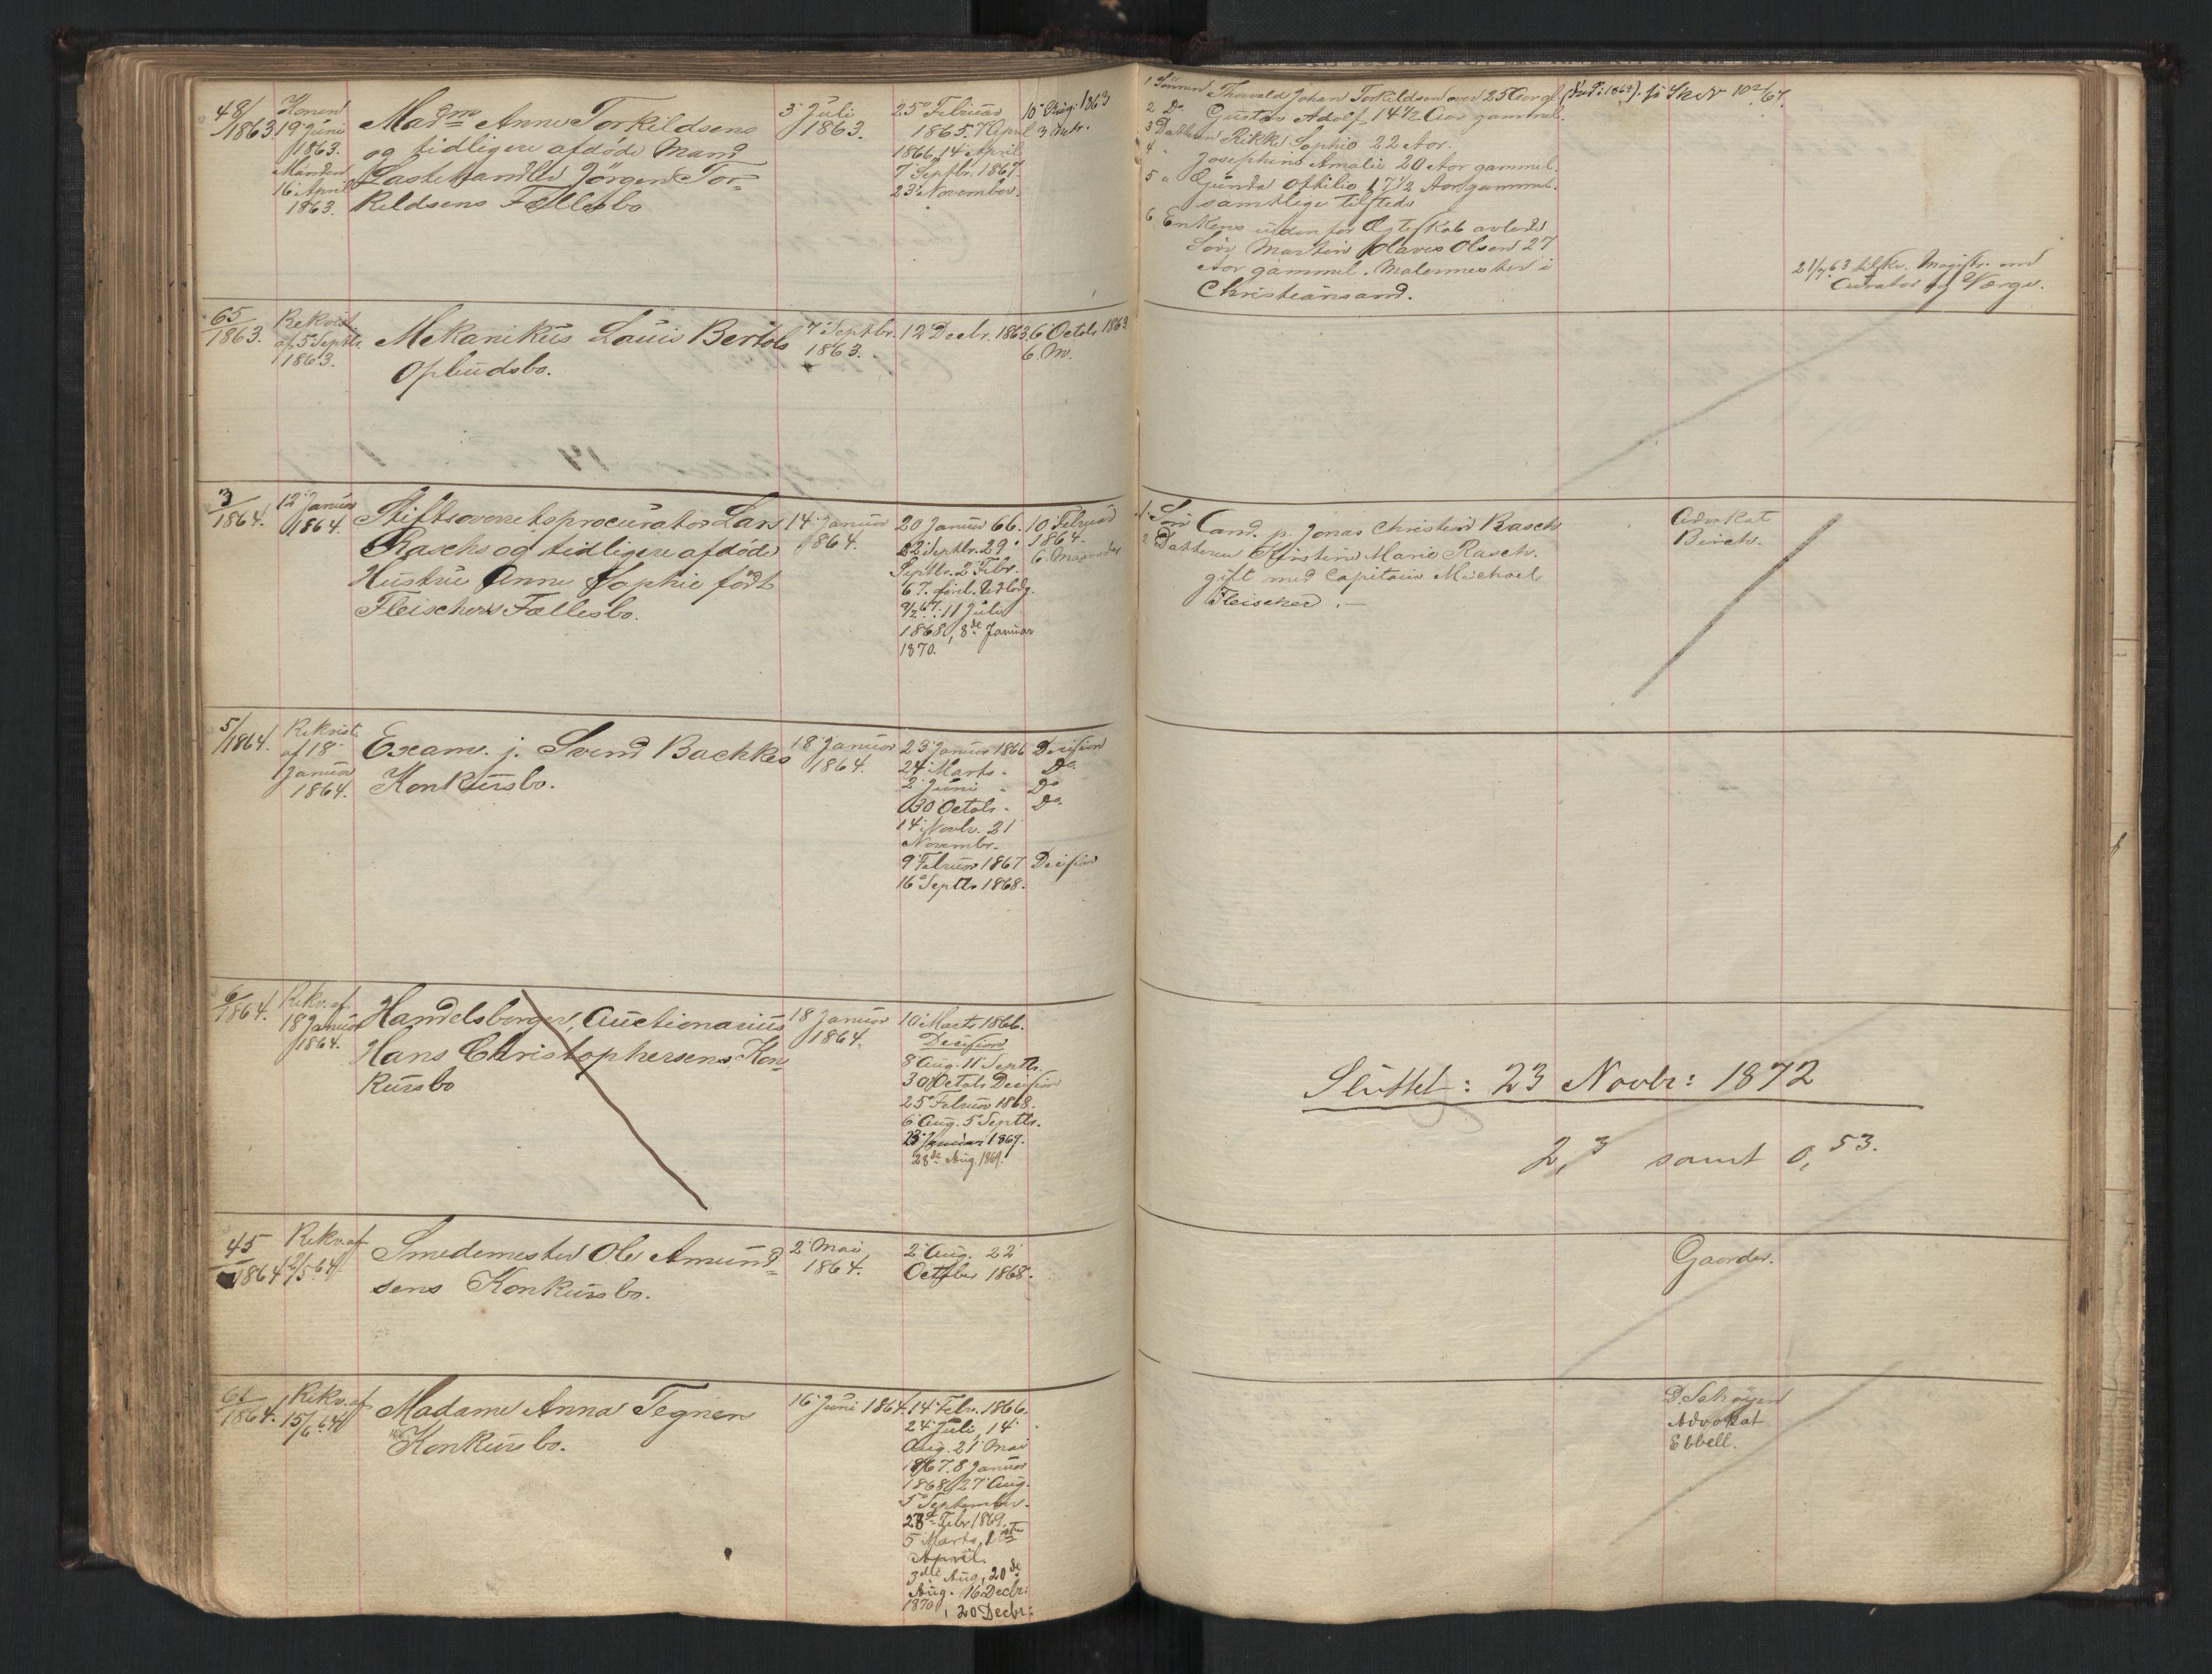 48/1863
Konen
19 Juni
1863.
Manden
16 April
1863.
Madme Anne Torkildsens
og tidligere afdøde Mand
Lastehandler Jörgen Tor-
keldsens Fællesbo
3 Juli
1863.
25 Februar
1865. 7 April
1866, 14 April
7 Septbr. 1867.
23 November.
10 Aug: 1863
3 Mdr.
1 Sønnen Thorvald Johan Torkildsen over 25 Aar gl.
2 Do Gustav Adolf 14 1/2 Aar gammel.
3 Datteren Rikke Sophie 22 Aar.
4 " Josephine Amalie 20 Aar gammel.
5 " Gunda Othilie 17 1/2 Aar gammel.
samtlige tilstede
6 Enkens uden for Ægteskab avlede
Sön Martin Olaves Olsen 27
Aar gammel. Malermester i
Christiansand.
21/7 63 tilskr. Magistr. om
Curator og Værge.
65/1863.
Rekvist.
af 5 Septbr.
1863.
Mekanikus Lauis Bertols
Opbudsbo.
7 Septbr.
1863.
12 Decbr. 1863.
6 Octobr 1863
6 M.
3/1864.
12 Januar
1864.
Stiftsoverretsprocurator Lars
Raschs og tidligere afdöde
Hustru Anne Sophie født
Fleischers Fællesbo.
14 Januar
1864.
20 Januar 66.
22 Septbr. 29
Septbr. 2 Febr.
67. forel. Udlodg.
9/2 67. 11 Juli
1868, 8de Januar
1870.
10 Februar
1864.
6 Maaneder
1. Sön Cand. p. Jonas Christian Rasch
2 Datteren Kirstine Marie Rasch.
gift med Capitain Michael
Fleischer. —
Advokat
Birch.
5/1864.
Rekvist.
af 18
Januar
1864.
Exam. j. Svend Bachkes
Konkursbo.
18 Januar
1864.
23 Januar 1866 Decision
24 Marts - Do
2 Juni - Do
30 Octobr - Do.
14 Novbr. 21
Novembr.
9 Februar 1867 Decision
16 Septbr 1868.
6/1864.
Rekv. af
18 Januar
1864.
Handelsborger, Auctionarius
Hans Christophersens Kon-
kursbo
18 Januar
1864.
10 Marts 1866.
Decision
8 Aug. 11 Septbr.
30 Octobr Decision
25 Februar 1868.
6 Aug. 5 Septbr.
23 Januar 1869.
28de Aug 1869.
Sluttet: 23 Novbr: 1872
2,3 samt 0,53.
45/1864
Rekv. af
2/5 64
Smedemester Ole Amund-
sens Konkursbo.
2 Mai
1864.
2 Aug. 22
October 1868.
Gaarder.
61/1864.
Rekv. af
15/6 64
Madame Anna Tegner
Konkursbo.
16 Juni 1864.
14 Febr. 1866.
24 Juli, 14
Aug. 21 Mai
1867. 8 Januar
1868, 27 Aug.
5 September.
28de Febr 1869.
5 Marts, 1ste
April.
3die Aug, 20de
Aug. 16 Decbr:
1870, 20 Decbr:
D. Schøyen
Advokat
Ebbell.